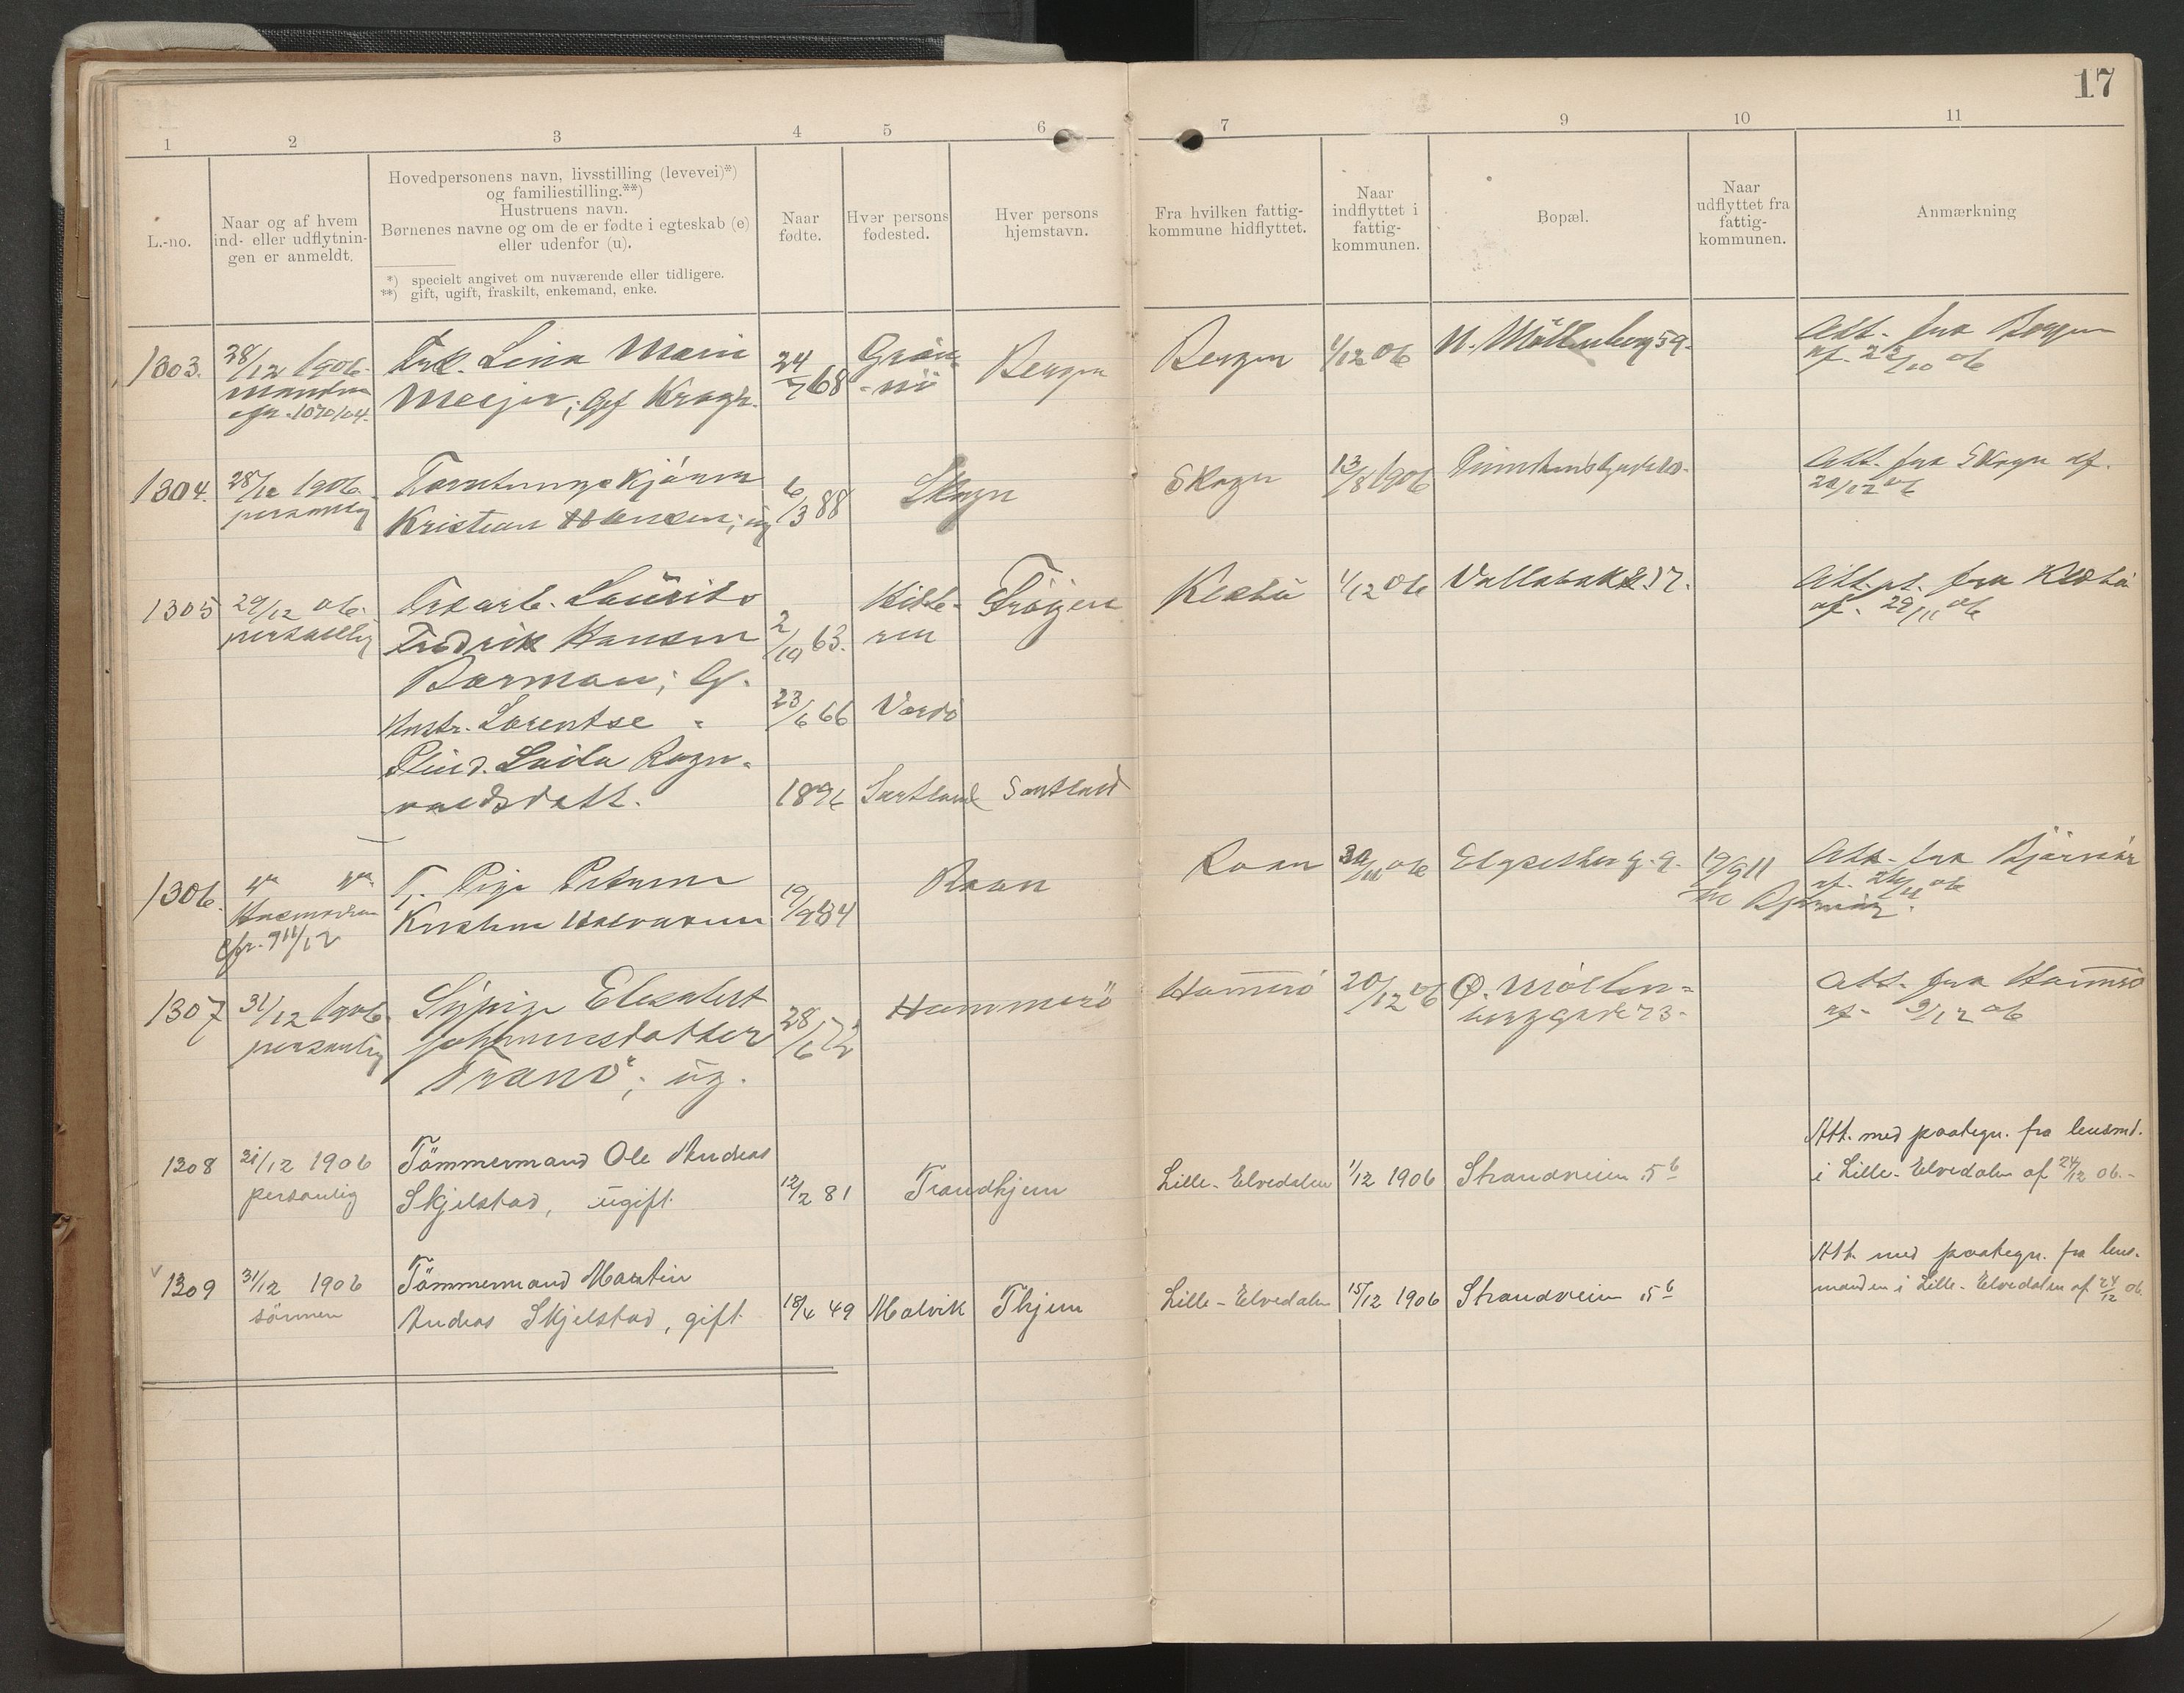 17
1 2 3 4 5 6 7 9 10 11
L.-no.
Naar og af hvem
ind- eller udflytnin-
gen er anmeldt.
Hovedpersonens navn, livsstilling (levevei)*)
og familiestilling.**)
Hustruens navn.
Børnenes navne og om de er fødte i egteskab (e)
eller udenfor (u).
*) specielt angivet om nuværende eller tidligere.
**) gift, ugift, fraskilt, enkemand, enke.
Naar
fødte.
Hver persons
fødested.
Hver persons
hjemstavn.
Fra hvilken fattig-
kommune hidflyttet.
Naar
indflyttet i
fattig-
kommunen.
Bopæl.
Naar
udflyttet fra
fattig-
kommunen.
Anmærkning
1303.
28/12 1906.
cfr. 1070/04.
Frk. Lina Marie
Meijer; Gf Krogh.
24/7 68
Grön-
nö
Bergen
Bergen
1/12 06
N. Möllenberg 59.
Att. fra Bergen
af 22/10 06
1304.
28/12 1906.
personlig
Kristian Hansen; ug
6/3 88
Skogn
Skogn
13/8 1906
Att. fra Skogn af.
20/12 06
1305
29/12 06.
personlig
Laurits
Fredrik Hansen
Barman; G.
Hustr. Lorentse "
Pleied. Laila Ragn-
valdsdatt.
2/10 63.
23/6 66
1896
Hitte-
ren
Vardö
Sortland
Fröyen
Sortland
1/12 06
17.
Att. fra
af 29/11 06
1306.
Cfr. 911/12
T. Pige Petrine
19/9 84
Roan
Roan
30/11 06
9.
19/9 11
Att. fra Bjørnör
af 26/11 06
Bjørnör.
1307
31/12 1906.
personlig
Elisabert
Johannesdatter
Tranö; ug.
28/6 72
Hammerö
Hammerö
20/12 06
Ø. Möllen-
berggade 73.
Att. fra Hammerö
af 9/12 06
1308
31/12 1906
personlig
Tömmermand Ole Andreas
Skjelstad, ugift
12/2 81
Trondhjem
Lille-Elvedalen
1/12 1906
Strandveien 5 b
Att. med paategn. fra lensmd.
i Lille-Elvedalen af 24/12 06.-
1309
31/12 1906
sönnen
Tömmermand Martin
Andreas Skjelstad, gift
18/4 49
Malvik
Thjem
Lille-Elvedalen
15/12 1906
Strandveien 5 b
Att. med paategn. fra lens-
manden i Lille-Elvedalen af 24/12 06.